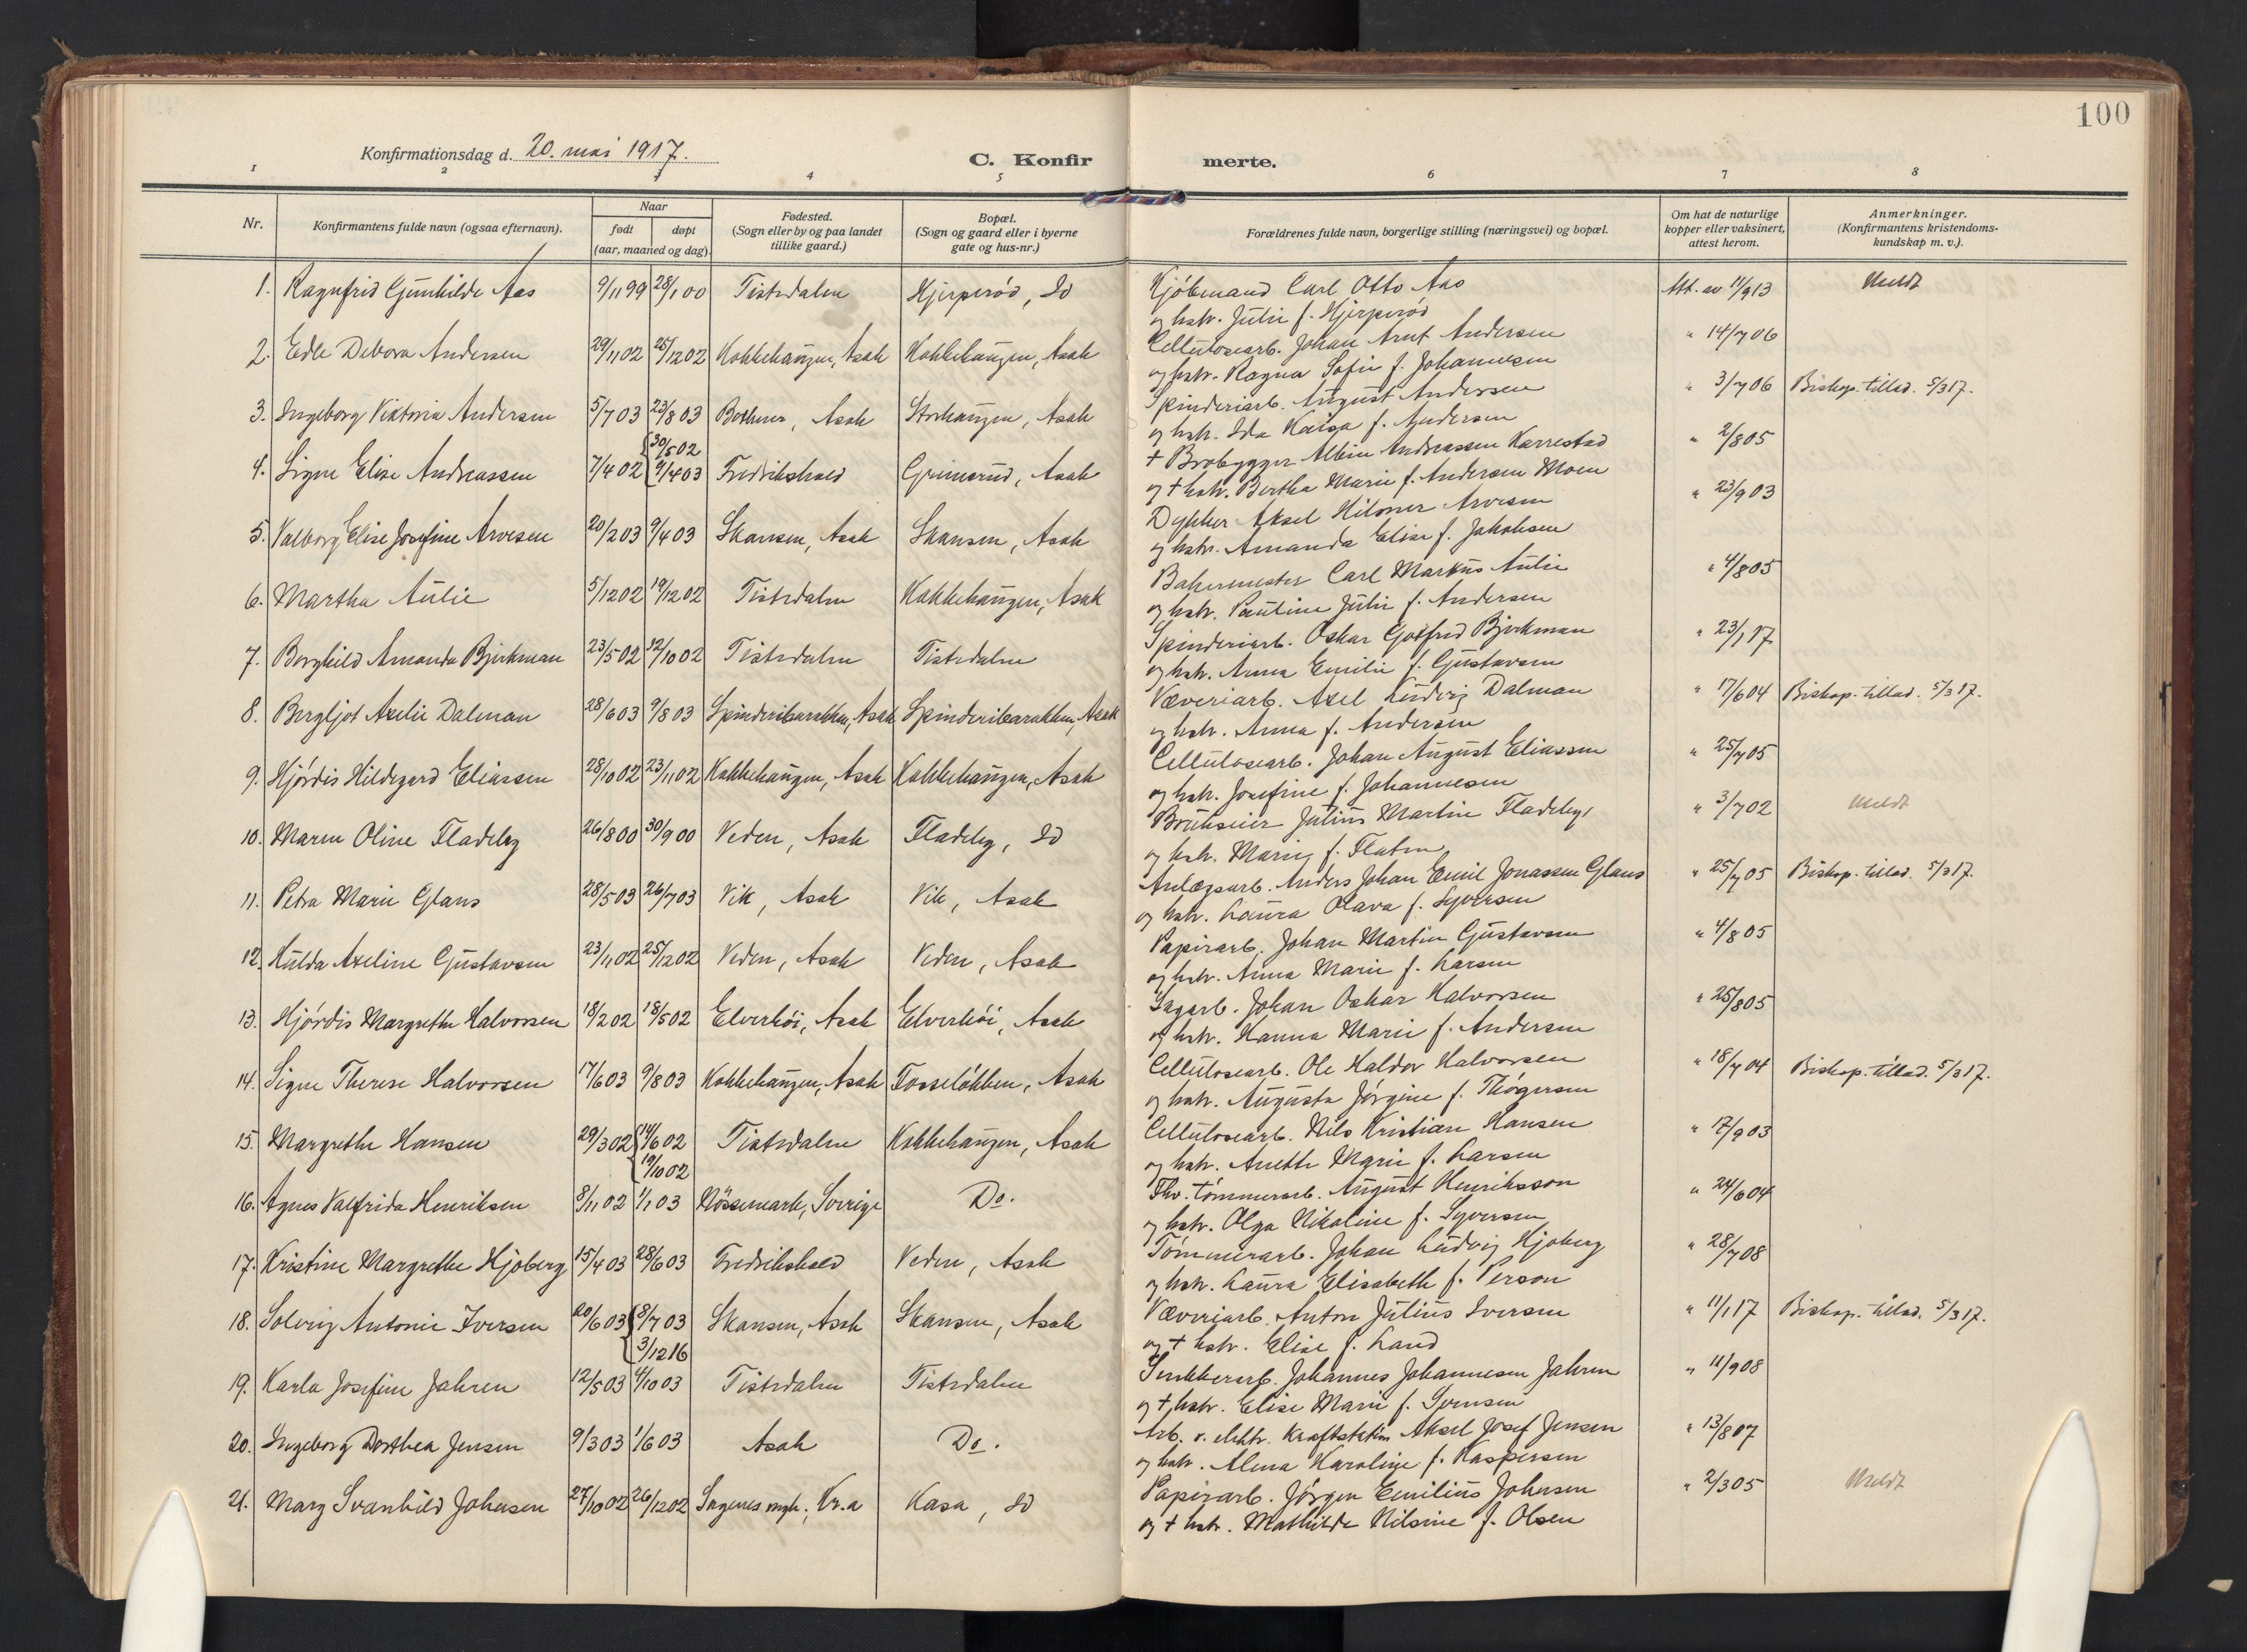 100
Konfirmationsdag d. 20. mai 1917.
C. Konfirmerte.
1 2 3 4 5 6 7 8
Nr.
Konfirmantens fulde navn (ogsaa efternavn).
Naar
født
døpt
(aar, maaned og dag).
Fødested.
(Sogn eller by og paa landet
tillike gaard.)
Bopæl.
(Sogn og gaard eller i byerne
gate og hus-nr.)
Forældrenes fulde navn, borgerlige stilling (næringsvei) og bopæl.
Om hat de naturlige
kopper eller vaksinert,
attest herom.
Anmerkninger.
(Konfirmantens kristendoms-
kundskap m. v.).
1. Ragnfrid Gunhilde Aas 9/11 99 28/1 00 Tistedalen Hjerperød, Id Kjöbmand Carl Otto Aas Att. av 11/9 13 Meldt
og hstr. Julie f. Hjerperød
2. Edle Debora Andersen 29/11 02 25/12 02 Kokkehaugen, Asak Kokkehaugen, Asak Cellulosearb. Johan Arnt Andersen " 14/7 06
og hstr. Ragna Sofie f. Johannesen
3. Ingeborg Viktoria Andersen 5/7 03 23/8 03 Bothner, Asak Storhaugen, Asak Spinderiarb. August Andersen " 3/7 06 Biskop. tillad. 5/3 17.
og hstr. Ida Kaisa f. Andersen
4. Signe Elise Andreassen 7/4 02 30/5 02 9/4 03 Fredrikshald Grimsrud, Asak † Brobygger Albin Andreassen Karrestad " 2/8 05
og † hstr. Bertha Marie f. Andersen Moen
5. Valborg Elise Josefine Arvesen 20/2 03 9/4 03 Skansen, Asak Skansen, Asak Dykker Aksel Hilmer Arvesen " 23/9 03
og hstr. Amanda Elise f. Jakobsen
6. Martha Aulie 5/12 02 19/12 02 Tistedalen Kokkehaugen, Asak Bakermester Carl Markus Aulie " 4/8 05
og hstr. Pauline Julie f. Andersen
7. Borghild Amanda Bjerkman 23/5 02 12/10 02 Tistedalen Tistedalen Spinderiarb. Oskar Gotfred Bjerkman " 23/1 17
og hstr. Anna Emilie f. Gustavsen
8. Bergljot Axelie Dalman 28/6 03 9/8 03 Spinderibarakken, Asak Spinderibarakken, Asak Væveriarb. Axel Ludvig Dalman " 17/6 04 Biskop. tillad. 5/3 17.
og hstr. Anna f. Andersen
9. Hjördis Hildegard Eliassen 28/10 02 23/11 02 Kokkehaugen, Asak Kokkehaugen, Asak Cellulosearb. Johan August Eliassen " 25/7 05
og hstr. Josefine f. Johannesen
10. Maren Oline Fladeby 26/8 00 30/9 00 Veden, Asak Fladeby, Id Brukseier Julius Martin Fladeby " 3/7 02 Meldt
og hstr. Marie f. Flaten
11. Petra Marie Glans 28/5 03 26/7 03 Vik, Asak Vik, Asak Anlægsarb. Anders Johan Emil Jonassen Glans " 25/7 05 Biskop. tillad. 5/3 17.
og hstr. Laura Olava f. Syversen
12. Hulda Axeline Gustavsen 23/11 02 25/12 02 Veden, Asak Veden, Asak Papirarb. Johan Martin Gustavsen " 4/8 05
og hstr. Anna Marie f. Larsen
13. Hjördis Margrethe Halvorsen 18/2 02 18/5 02 Elverhöi, Asak Elverhöi, Asak Sagarb. Johan Oskar Halvorsen " 25/8 05
og hstr. Hanna Marie f. Andersen
14. Signe Therese Halvorsen 17/6 03 9/8 03 Kokkehaugen, Asak Fosselökken, Asak Cellulosearb. Ole Haldor Halvorsen " 18/7 04 Biskop. tillad. 5/3 17.
og hstr. Augusta Jörgine f. Thögersen
15. Margrethe Hansen 29/3 02 14/6 02 19/10 02 Tistedalen Kokkehaugen, Asak Cellulosearb. Nils Kristian Hansen " 17/9 03
og hstr. Anette Marie f. Larsen
16. Agnes Valfrida Henriksen 8/11 02 1/1 03 Nössemark, Sverige Do. Fhv. tömmerarb. August Henriksson " 24/6 04
og hstr. Olga Nikoline f. Syversen
17. Kristine Margrethe Hjoberg 15/4 03 28/6 03 Fredrikshald Veden, Asak Tömmerarb. Johan Ludvig Hjoberg " 28/7 08
og hstr. Laura Elisabeth f. Person
18. Solveig Antonie Iversen 20/6 03 8/7 03 3/12 16 Skansen, Asak Skansen, Asak Væveriarb. Anton Julius Iversen " 11/1 17 Biskop. tillad. 5/3 17.
og † hstr. Elise f. Land
19. Karla Josefine Jahren 12/5 03 4/10 03 Tistedalen Tistedalen Johannes Johannesen Jahren " 11/9 08
og † hstr. Elise Marie f.
20. Ingeborg Dorthea Jensen 9/3 03 1/6 03 Asak Do. Arb. v. elektr. Kraftstation Aksel Josef Jensen " 13/8 07
og hstr. Alma Karoline f. Kaspersen
21. Mary Svanhild Johnsen 27/10 02 26/12 02 Sagenes mgh., Kr.a Kasa, Id Papirarb. Jörgen Emilius Johnsen " 2/3 05 Meldt
og † hstr. Mathilde Nilsine f. Olsen